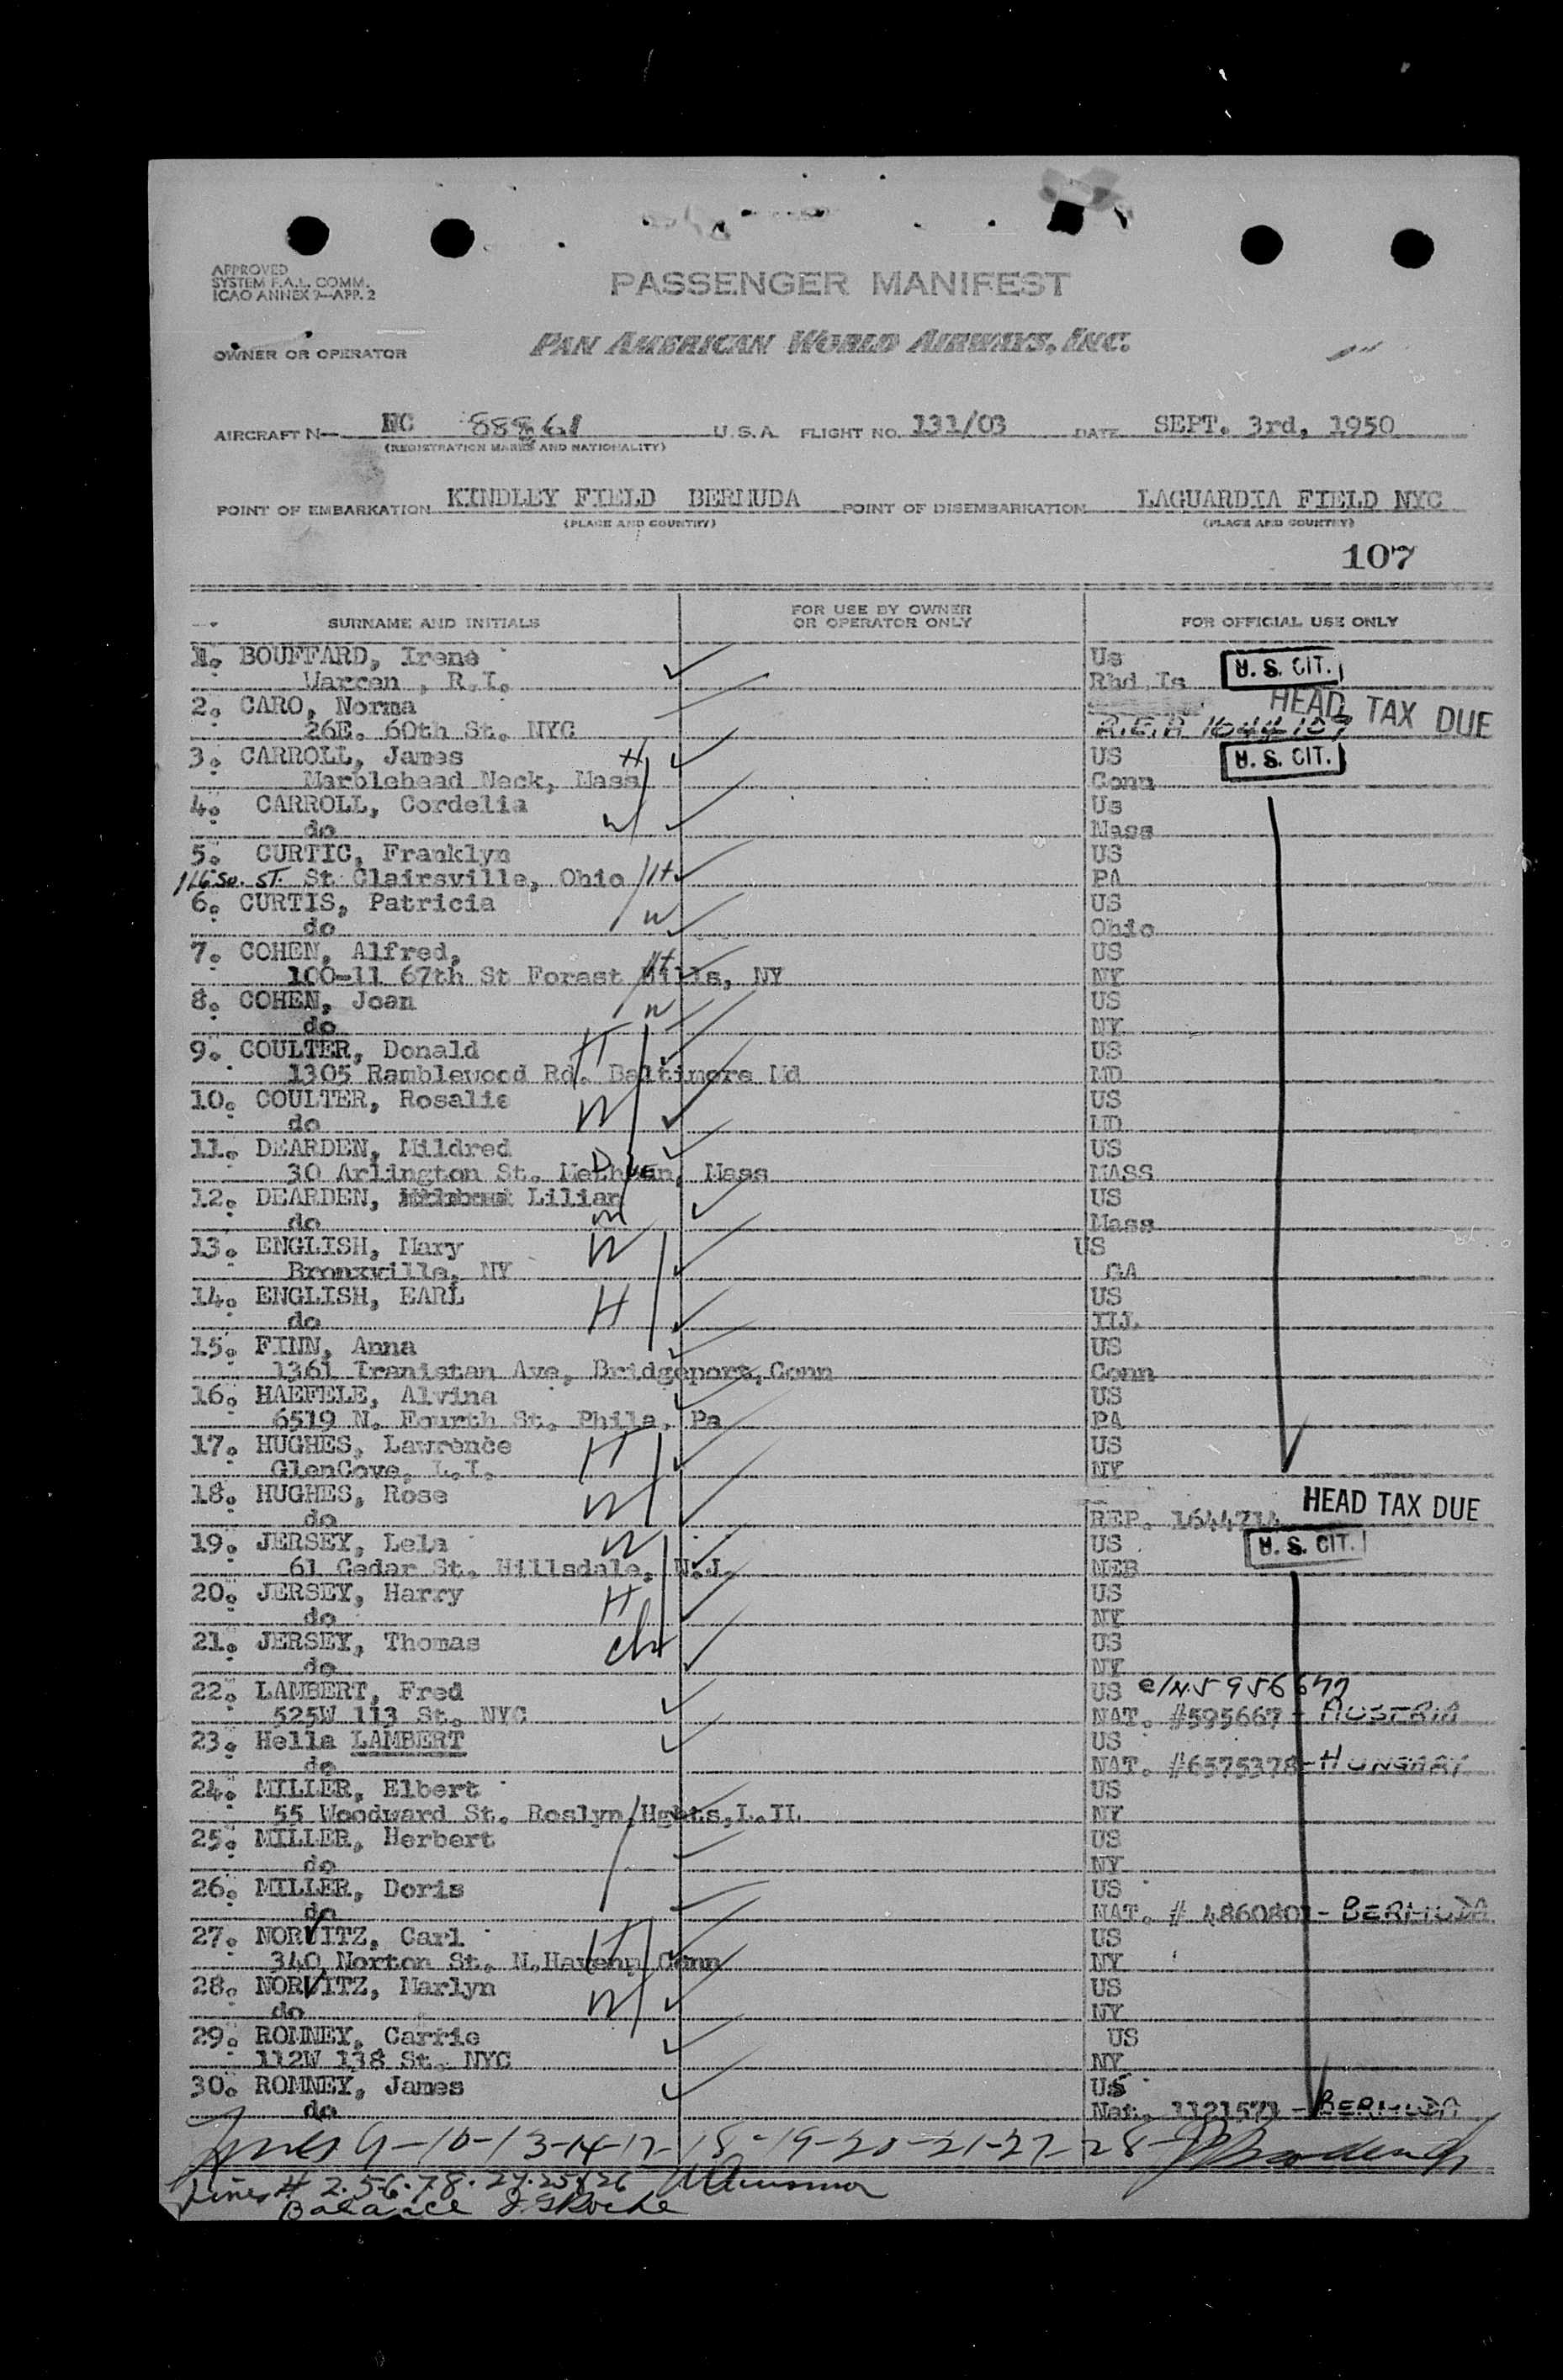 APPROVED
SYSTEM F.A.L. COMM.
ICAO ANNEX 9—APP. 2
PASSENGER MANIFEST
OWNER OR OPERATOR PAN AMERICAN WORLD AIRWAYS, INC.
AIRCRAFT N— NC 88861 U.S.A. FLIGHT NO. 131/03 DATE SEPT. 3rd, 1950
(REGISTRATION MARKS AND NATIONALITY)
POINT OF EMBARKATION KINDLEY FIELD BERMUDA POINT OF DISEMBARKATION LAGUARDIA FIELD NYC
(PLACE AND COUNTRY) (PLACE AND COUNTRY)
107
SURNAME AND INITIALS FOR USE BY OWNER OR OPERATOR ONLY FOR OFFICIAL USE ONLY
1. BOUFFARD, Irene Us U. S. CIT.
Warren , R.I. Rhd Is
2. CARO, Norma HEAD TAX DUE
26E. 60th St. NYC R.E.P. 1644109
3. CARROLL, James H US U. S. CIT.
Marblehead Neck, Mass Conn
4. CARROLL, Cordelia Us
do W Mass
5. CURTIC, Franklyn US
116 So. ST. St Clairsville, Ohio H PA
6. CURTIS, Patricia US
do W Ohio
7. COHEN, Alfred, H US
100-11 67th St Forest Hills, NY NY
8. COHEN, Joan W US
do NY
9. COULTER, Donald H US
1305 Ramblewood Rd. Baltimore Md MD
10. COULTER, Rosalie W US
do MD
11. DEARDEN, Mildred D US
30 Arlington St. Methuen, Mass MASS
12. DEARDEN, Lilian US
do M Mass
13. ENGLISH, Mary W US
Bronxville, NY GA
14. ENGLISH, EARL H US
do ILL
15. FINN, Anna US
1361 Iranistan Ave, Bridgeport, Conn Conn
16. HAEFELE, Alvina US
6519 N. Fourth St. Phila, Pa PA
17. HUGHES, Lawrence H US
GlenCove, L.I. NY
18. HUGHES, Rose W HEAD TAX DUE
do REP. 1644714
19. JERSEY, Lela W US U. S. CIT.
61 Cedar St. Hillsdale, N.J. NEB
20. JERSEY, Harry H US
do NY
21. JERSEY, Thomas ch US
do NY
22. LAMBERT, Fred US C/N 5956677
525W 113 St. NYC NAT. #595667 - AUSTRIA
23. Hella LAMBERT US
do NAT. #6575378 - HUNGARY
24. MILLER, Elbert US
55 Woodward St. Roslyn Hghts, L.IL NY
25. MILLER, Herbert US
do NY
26. MILLER, Doris US
do NAT. # 4860801 - BERMUDA
27. NORVITZ, Carl H US
340 Norton St. N.Haven, Conn NY
28. NORVITZ, Marlyn W US
do NY
29. ROMNEY, Carrie US
112W 138 St. NYC NY
30. ROMNEY, James US
do Nat. 1121571 - BERMUDA
Lines 9-10-13-14-17-18-19-20-21-27-28-
Lines # 2.5.6.7.8.24.25&26
Balance